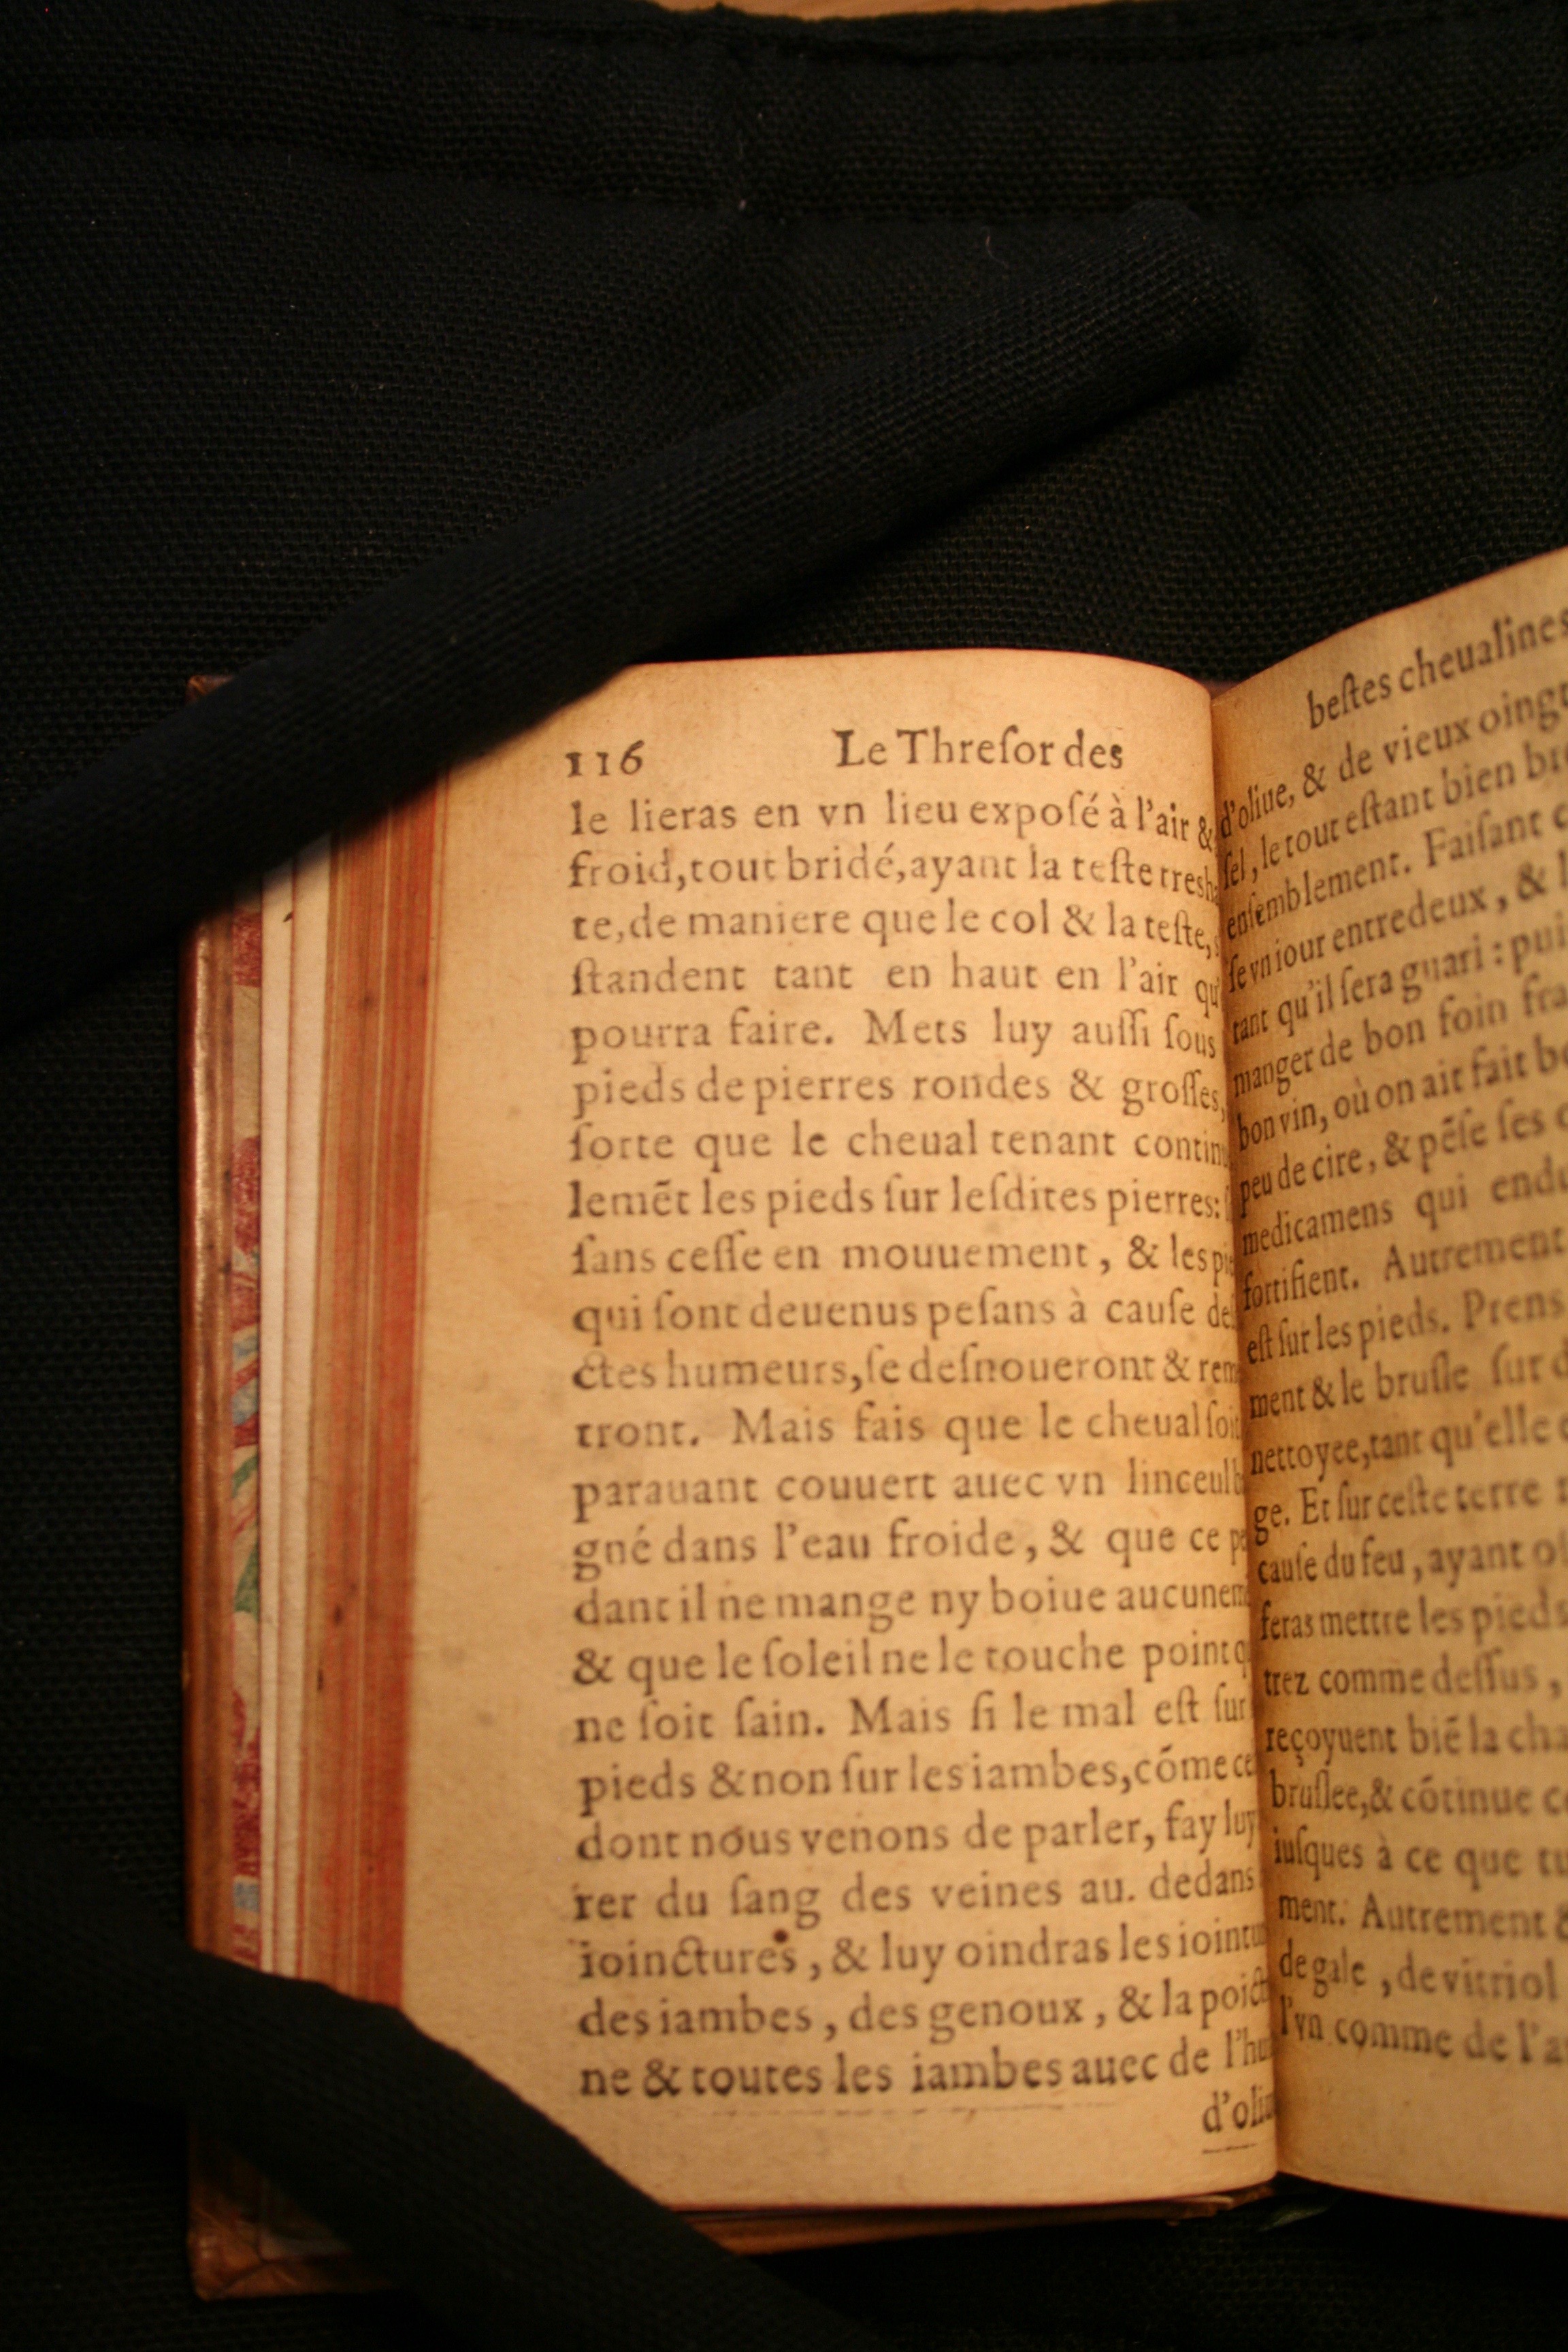 116 Le Threſor des
le lieras en vn lieu expoſé à l'air &
froid, tout bridé, ayant la teſte tresh
te, de maniere que le col & la teſte,
ſtandent tant en haut en l'air qu'
pourra faire. Mets luy auſſi ſous
pieds de pierres rondes & groſſes,
ſorte que le cheual tenant contin
lemēt les pieds ſur leſdites pierres:
ſans ceſſe en mouuement, & les pi
qui ſont deuenus peſans à cauſe de
ctes humeurs, ſe deſnoueront & rem
tront. Mais fais que le cheual ſoit
parauant couuert auec vn linceul
gné dans l'eau froide, & que ce pe
dant il ne mange ny boiue aucunem
& que le ſoleil ne le touche point q
ne ſoit ſain. Mais ſi le mal eſt ſur
pieds & non ſur les iambes, cóme ce
dont nous venons de parler, fay luy
rer du ſang des veines au. dedans
ioinctures, & luy oindras les iointu
des iambes, des genoux, & la poict
ne & toutes les iambes auec de l'hu
d'oliu
beſtes cheualines
d'oliue, & de vieux oing
ſel, le tout eſtant bien br
enſemblement. Faiſant c
ſe vn iour entredeux, & l
tant qu'il ſera guari: pui
manger de bon foin fra
bon vin, où on ait fait b
peu de cire, & pēſe ſes
medicamens qui endu
fortifient. Autrement
eſt ſur les pieds. Prens
ment & le bruſle ſur d
nettoyee, tant qu'elle
ge. Et ſur ceſte terre
cauſe du feu, ayant o
feras mettre les pieds
trez comme deſſus,
reçoyuent biē la cha
bruſlee, & cótinue c
iuſques à ce que tu
ment. Autrement
de gale, de vitriol
l'vn comme de l'a